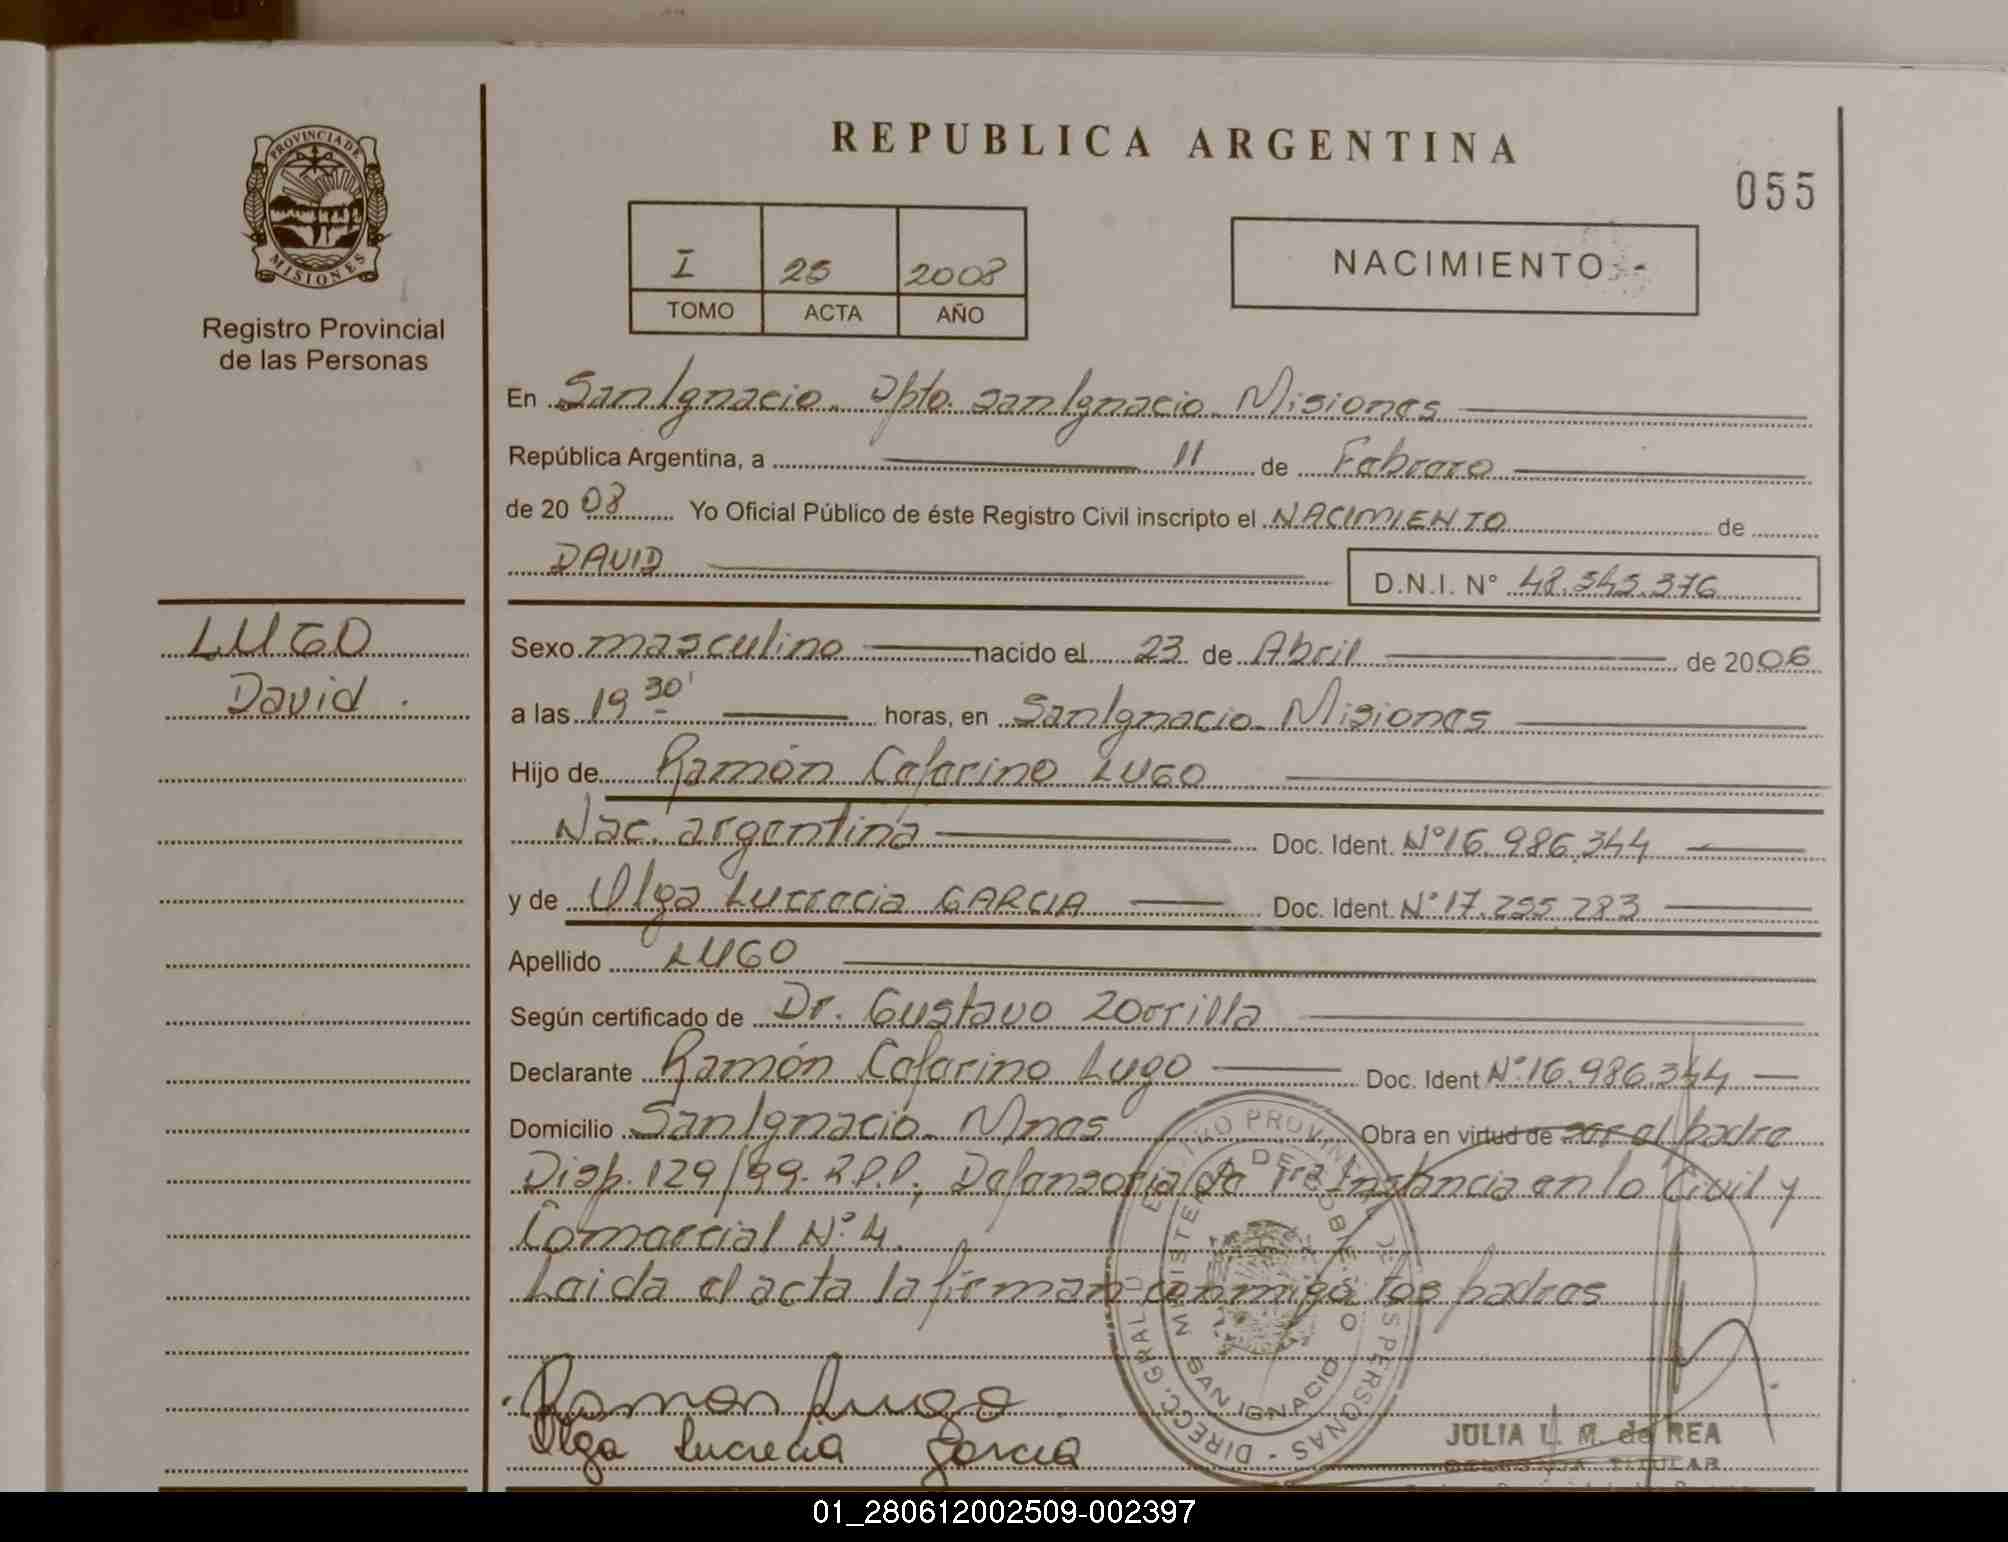 REPUBLICA ARGENTINA
055
PROVINCIA DE
MISIONES
Registro Provincial
de las Personas
I 25 2008
TOMO ACTA AÑO
NACIMIENTO
En San Ignacio. Dpto. San Ignacio. Misiones
República Argentina, a 11 de Febrero
de 20 08 Yo Oficial Público de éste Registro Civil inscripto el NACIMIENTO de
DAVID D.N.I. N° 48.545.376
LUGO
David
Sexo masculino nacido el 23 de Abril de 20 06
a las 19 30' horas, en San Ignacio. Misiones
Hijo de Ramón Ceferino LUGO
Nac. argentina Doc. Ident. N° 16.986.344
y de Olga Lucrecia GARCIA Doc. Ident. N° 17.255.283
Apellido LUGO
Según certificado de Dr. Gustavo Zorrilla
Declarante Ramón Ceferino Lugo Doc. Ident N° 16.986.344
Domicilio San Ignacio. Mnes Obra en virtud de ser el padre
Disp. 129/99. R.P.P.; Defensoria de 1ra Instancia en lo Civil y
Comercial N° 4.
Leida el acta la firman conmigo los padres
Ramon Lugo
Olga Lucrecia Garcia
SAN IGNACIO
JULIA L. M. de REA
TITULAR
01_280612002509-002397